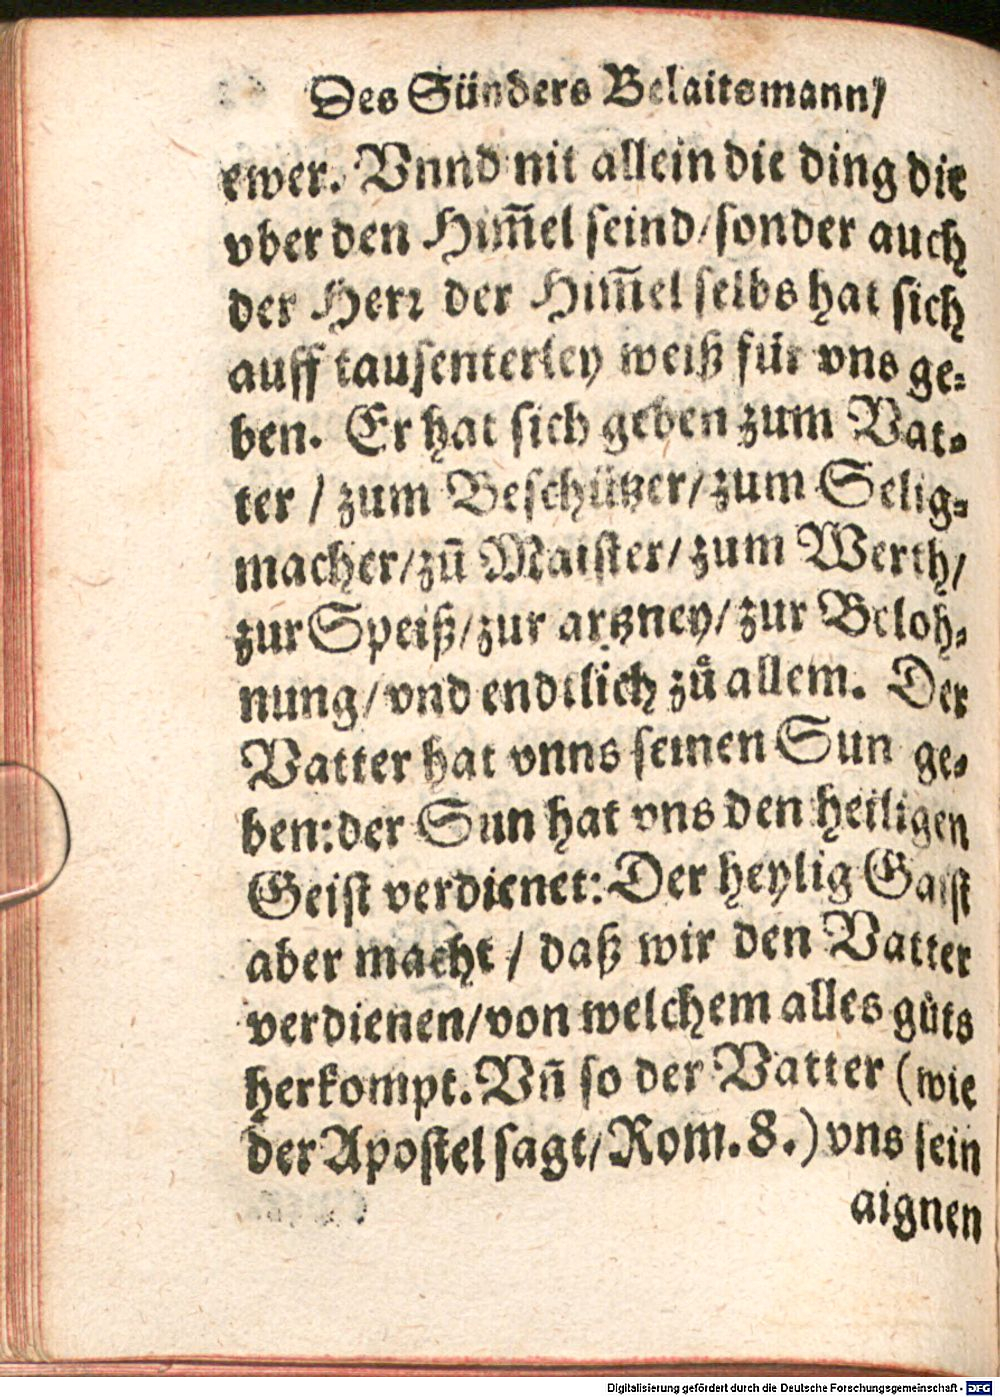 Des Sünders Belaitsmann/
ewer. Vnnd nit allein die ding die
vber den Him̄el seind/sonder auch
der Herr der Him̄el selbs hat sich
auff tausenterley weiß für vns ge-
ben. Er hat sich geben zum Vat-
ter / zum Beschützer/zum Selig-
macher/zū Maister/zum Werth/
zur Speiß/zur artzney/zur Beloh-
nung/vnd endtlich zů allem. Der
Vatter hat vnns seinen Sun ge-
ben:der Sun hat vns den heiligen
Geist verdienet:Der heylig Gaist
aber macht / daß wir den Vatter
verdienen/von welchem alles gůts
herkompt. Vn̄ so der Vatter (wie
der Apostel sagt/Rom. 8.) vns sein
aignen
Digitalisierung gefördert durch die Deutsche Forschungsgemeinschaft - DFG